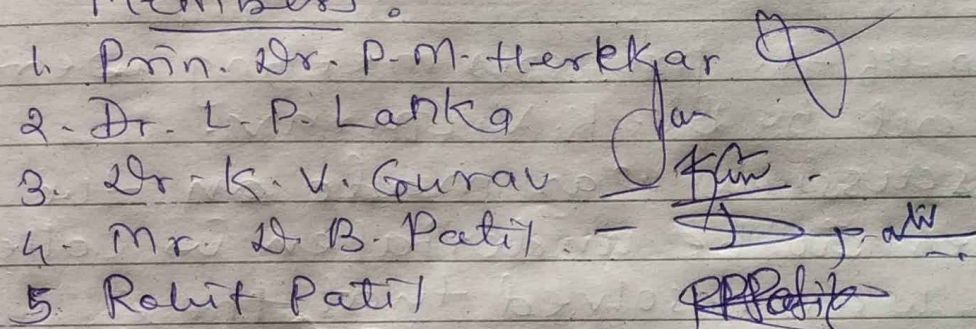 Members.
1. Prin. Dr. P. M. Herekar
2. Dr. L. P. Lanka
3. Dr. K. V. Gurav
4. Mr. D. B. Patil -
5. Rohit Patil RPPatil